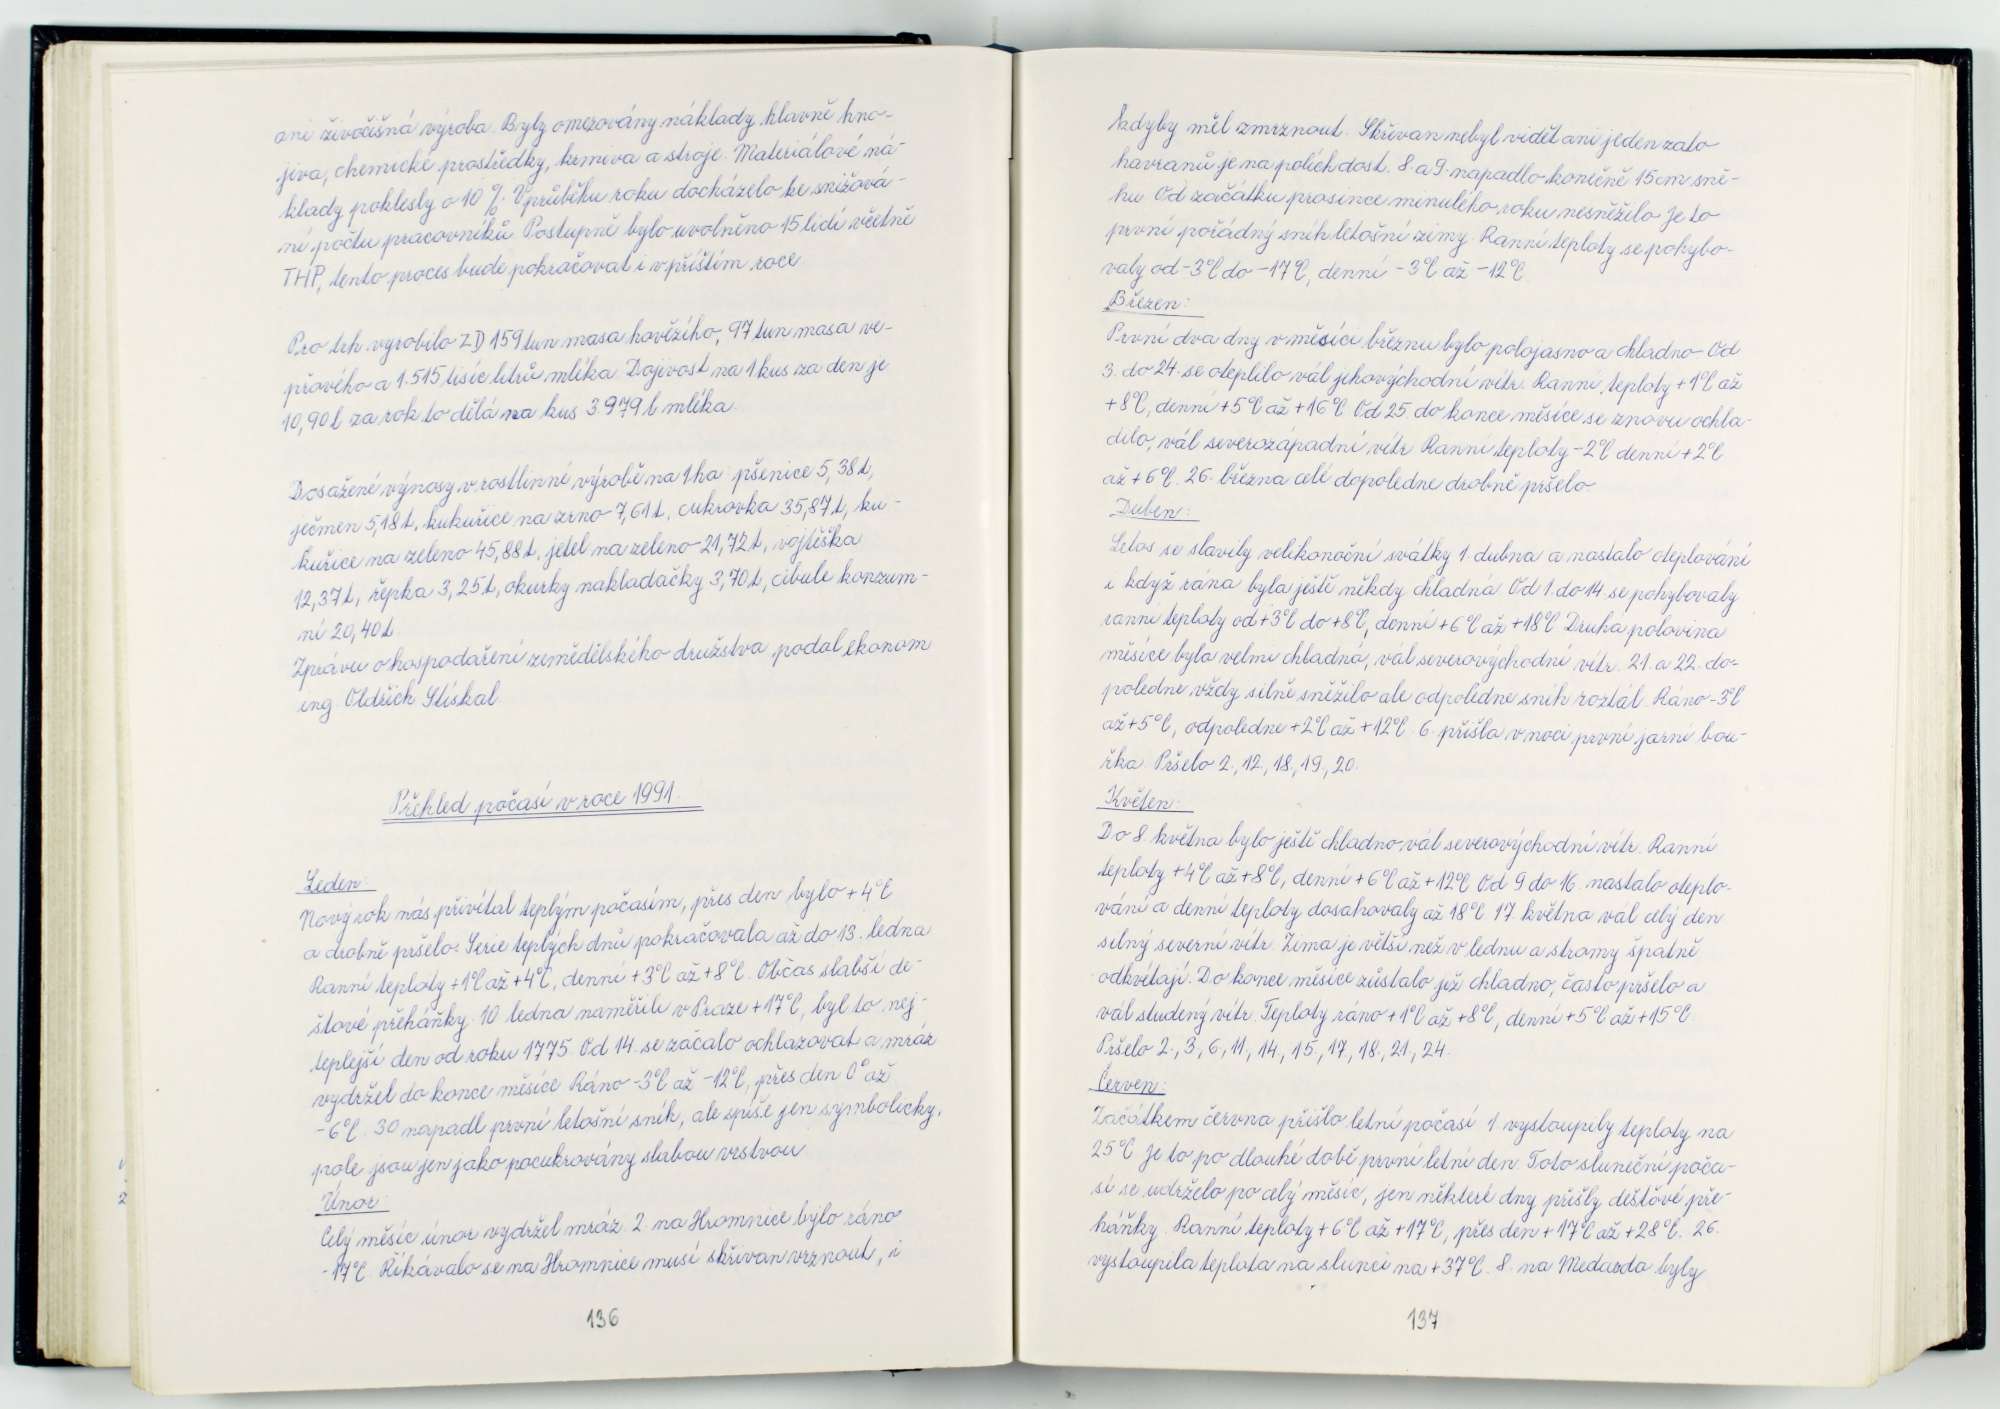 ani živočišná výroba. Byly omezovány náklady hlavně hno-
jiva, chemické prostředky, krmiva a stroje. Materiálové ná-
klady poklesly o 10 %. V průběhu roku docházelo ke snižová-
ní počtu pracovníků. Postupně bylo uvolněno 15 lidí včetně
THP, tento proces bude pokračovat i v příštím roce
Pro trh vyrobilo ZD 159 tun masa hovězího, 97 tun masa ve-
přového a 1.515 tisíc litrů mlíka. Dojivost na 1 kus za den je
10,90 l za rok to dělá na kus 3.979 l mlíka.
Dosažené výnosy v rostlinné výrobě na 1 ha pšenice 5,38 t,
ječmen 5,18 t, kukuřice na zrno 7,61 t, cukrovka 35,87 t, ku-
kuřice na zeleno 45,88 t, jetel na zeleno 21,72 t, vojtěška
12,37 t, řepka 3,25 t, okurky nakladačky 3,70 t, cibule konzum-
ní 20,40 t
Zprávu o hospodaření zemědělského družstva podal ekonom
ing. Oldřich Stískal.
Přehled počasí v roce 1991.
Leden:
Nový rok nás přivítal teplým počasím, přes den bylo +4°C
a drobně pršelo. Serie teplých dnů pokračovala až do 13. ledna
Ranní teploty +1°C až +4°C, denní +3°C až +8°C. Občas slabší de-
šťové přeháňky. 10 ledna naměřili v Praze +17°C, byl to nej-
teplejší den od roku 1775. Od 14. se začalo ochlazovat a mráz
vydržel do konce měsíce Ráno -3°C až -12°C, přes den 0° až
-6°C. 30 napadl první letošní sníh, ale spíše jen symbolicky,
pole jsou jen jako pocukrovány slabou vrstvou
Únor:
Celý měsíc únor vydržel mráz. 2. na Hromnice bylo ráno
-17°C. Říkávalo se na Hromnice musí skřivan vrznout, i
kdyby měl zmrznout. Skřivan nebyl vidět ani jeden zato
havranů je na polích dost. 8. a 9. napadlo konečně 15 cm sně-
hu. Od začátku prosince minulého roku nesněžilo. Je to
první pořádný sníh letošní zimy. Ranní teploty se pohybo-
valy od -3°C do -17°C, denní -3°C až -12°C.
Březen:
První dva dny v měsíci březnu bylo polojasno a chladno. Od
3. do 24. se oteplilo vál jihovýchodní vítr. Ranní teploty +1°C až
+8°C, denní +5°C až +16°C. Od 25. do konce měsíce se znovu ochla-
dilo, vál severozápadní vítr. Ranní teploty -2°C denní +2°C
až +6°C. 26. března celé dopoledne drobně pršelo.
Duben:
Letos se slavily velikonoční svátky 1. dubna a nastalo oteplování
i když rána byla ještě někdy chladná. Od 1. do 14. se pohybovaly
ranní teploty od +3°C do +8°C, denní +6°C až +18°C. Druhá polovina
měsíce byla velmi chladná, vál severovýchodní vítr. 21. a 22. do-
poledne vždy silně sněžilo ale odpoledne sníh roztál. Ráno -3°C
až +5°C, odpoledne +2°C až +12°C. 6. přišla v noci první jarní bou-
řka. Pršelo 2., 12., 18., 19., 20.
Květen:
Do 8. května bylo ještě chladno, vál severovýchodní vítr. Ranní
teploty +4°C až +8°C, denní +6°C až +12°C. Od 9 do 16. nastalo oteplo-
vání a denní teploty dosahovaly až 18°C. 17. května vál celý den
silný severní vítr. Zima je větší než v lednu a stromy špatně
odkvétají. Do konce měsíce zůstalo již chladno, často pršelo a
vál studený vítr. Teploty ráno +1°C až +8°C, denní +5°C až +15°C.
Pršelo 2., 3., 6., 11., 14., 15., 17., 18., 21., 24.
Červen:
Začátkem června přišlo letní počasí 1. vystoupily teploty na
25°C. Je to po dlouhé době první letní den. Toto sluneční poča-
sí se udrželo po celý měsíc, jen některé dny přišly dešťové pře-
háňky. Ranní teploty +6°C až +17°C, přes den +17°C až +28°C. 26.
vystoupila teplota na slunci na +37°C. 8. na Medarda byly
136
137